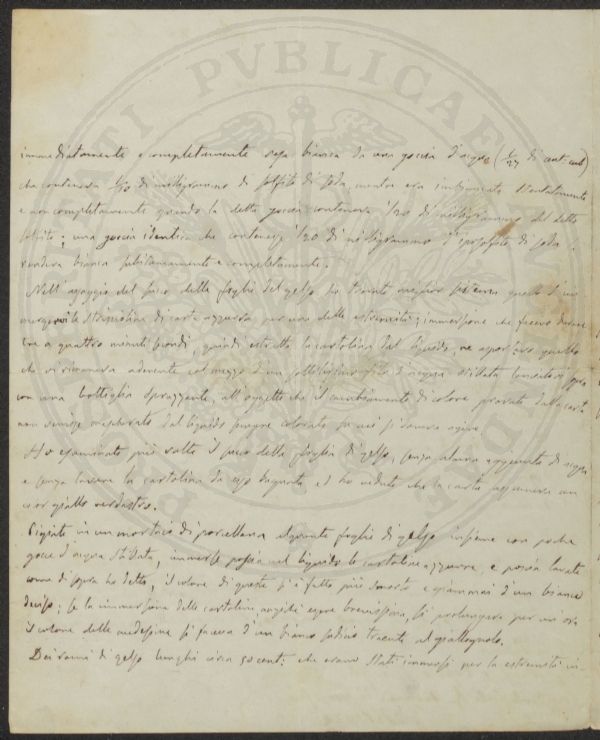 immediatamente e completamente resa bianca da una goccia d'acqua (1/27 di cent. cub)
che conteneva 1/50 di milligrammo di solfito di soda, mentre era
e non completamente quando la detta goccia conteneva 1/20 di milligrammo del detto
solfito; una goccia identica che contenesse 1/20 di milligrammo d'iposolfito di soda
rendeva bianca subitaneamente e completamente.
Nell'assaggio del succo delle foglie del gelso ho trovato miglior sistema quello d'im
mergervi le striscioline di carta azzurra per una delle estremità; immersione che facevo durare
tre a quattro minuti secondi, quindi estratta la cartolina dal liquido, ne asportavo quello
che vi rimaneva aderente col mezzo d'un sottilissimo filo d'acqua stillata lanciato
con una bottiglia sprazzante, all'oggetto che il cambiamento di colore provato dalla carta
non venisse mascherato dal liquido sempre colorato su cui si doveva agire.
Ho esaminato più volte il succo delle foglie di gelso, senza alcuna aggiunta di acqua
e senza lavare la cartolina da esso bagnata ed ho veduto che la carta assumeva un
color giallo verdastro.
Pigiate in un mortaio di porcellana alquante foglie di gelso insieme con poche
gocce d'acqua stillata, immerse poscia nel liquido le cartoline azzurre, e poscia lavate
come di sopra ho detto, il colore di queste si è fatto più smorto e giammai d'un bianco
deciso; se la immersione delle cartoline anziché essere brevissima, si prolungava per un ora
il colore delle medesime si faceva d'un bianco sudicio traente al giallognolo.
Dei rami di gelso lunghi circa 50 centi: che erano stati immersi per la estremità in